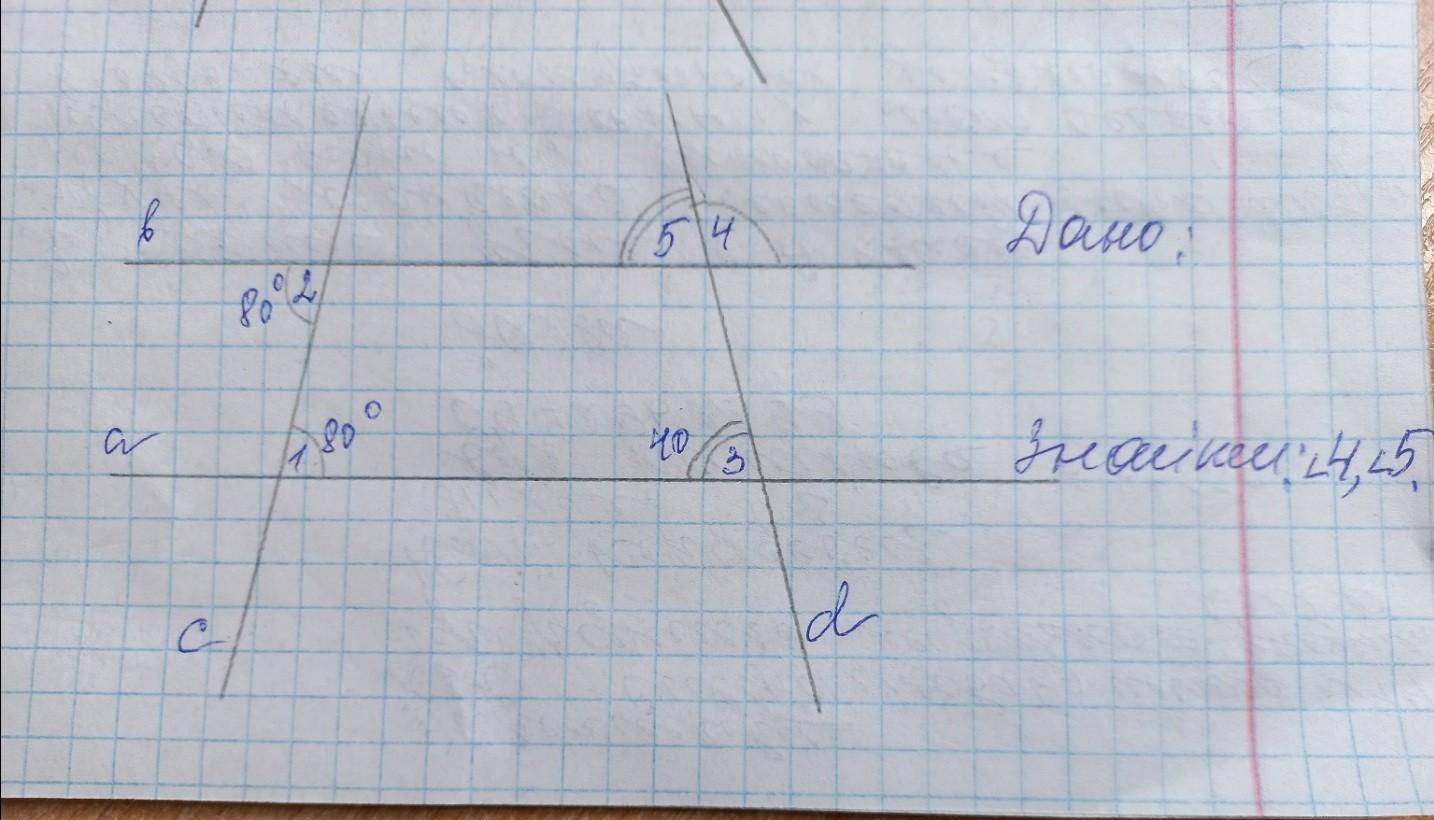 b
5 4
Дано:
80° 2
a
1 80°
40 3
Знайти: ∠4, ∠5.
c
d